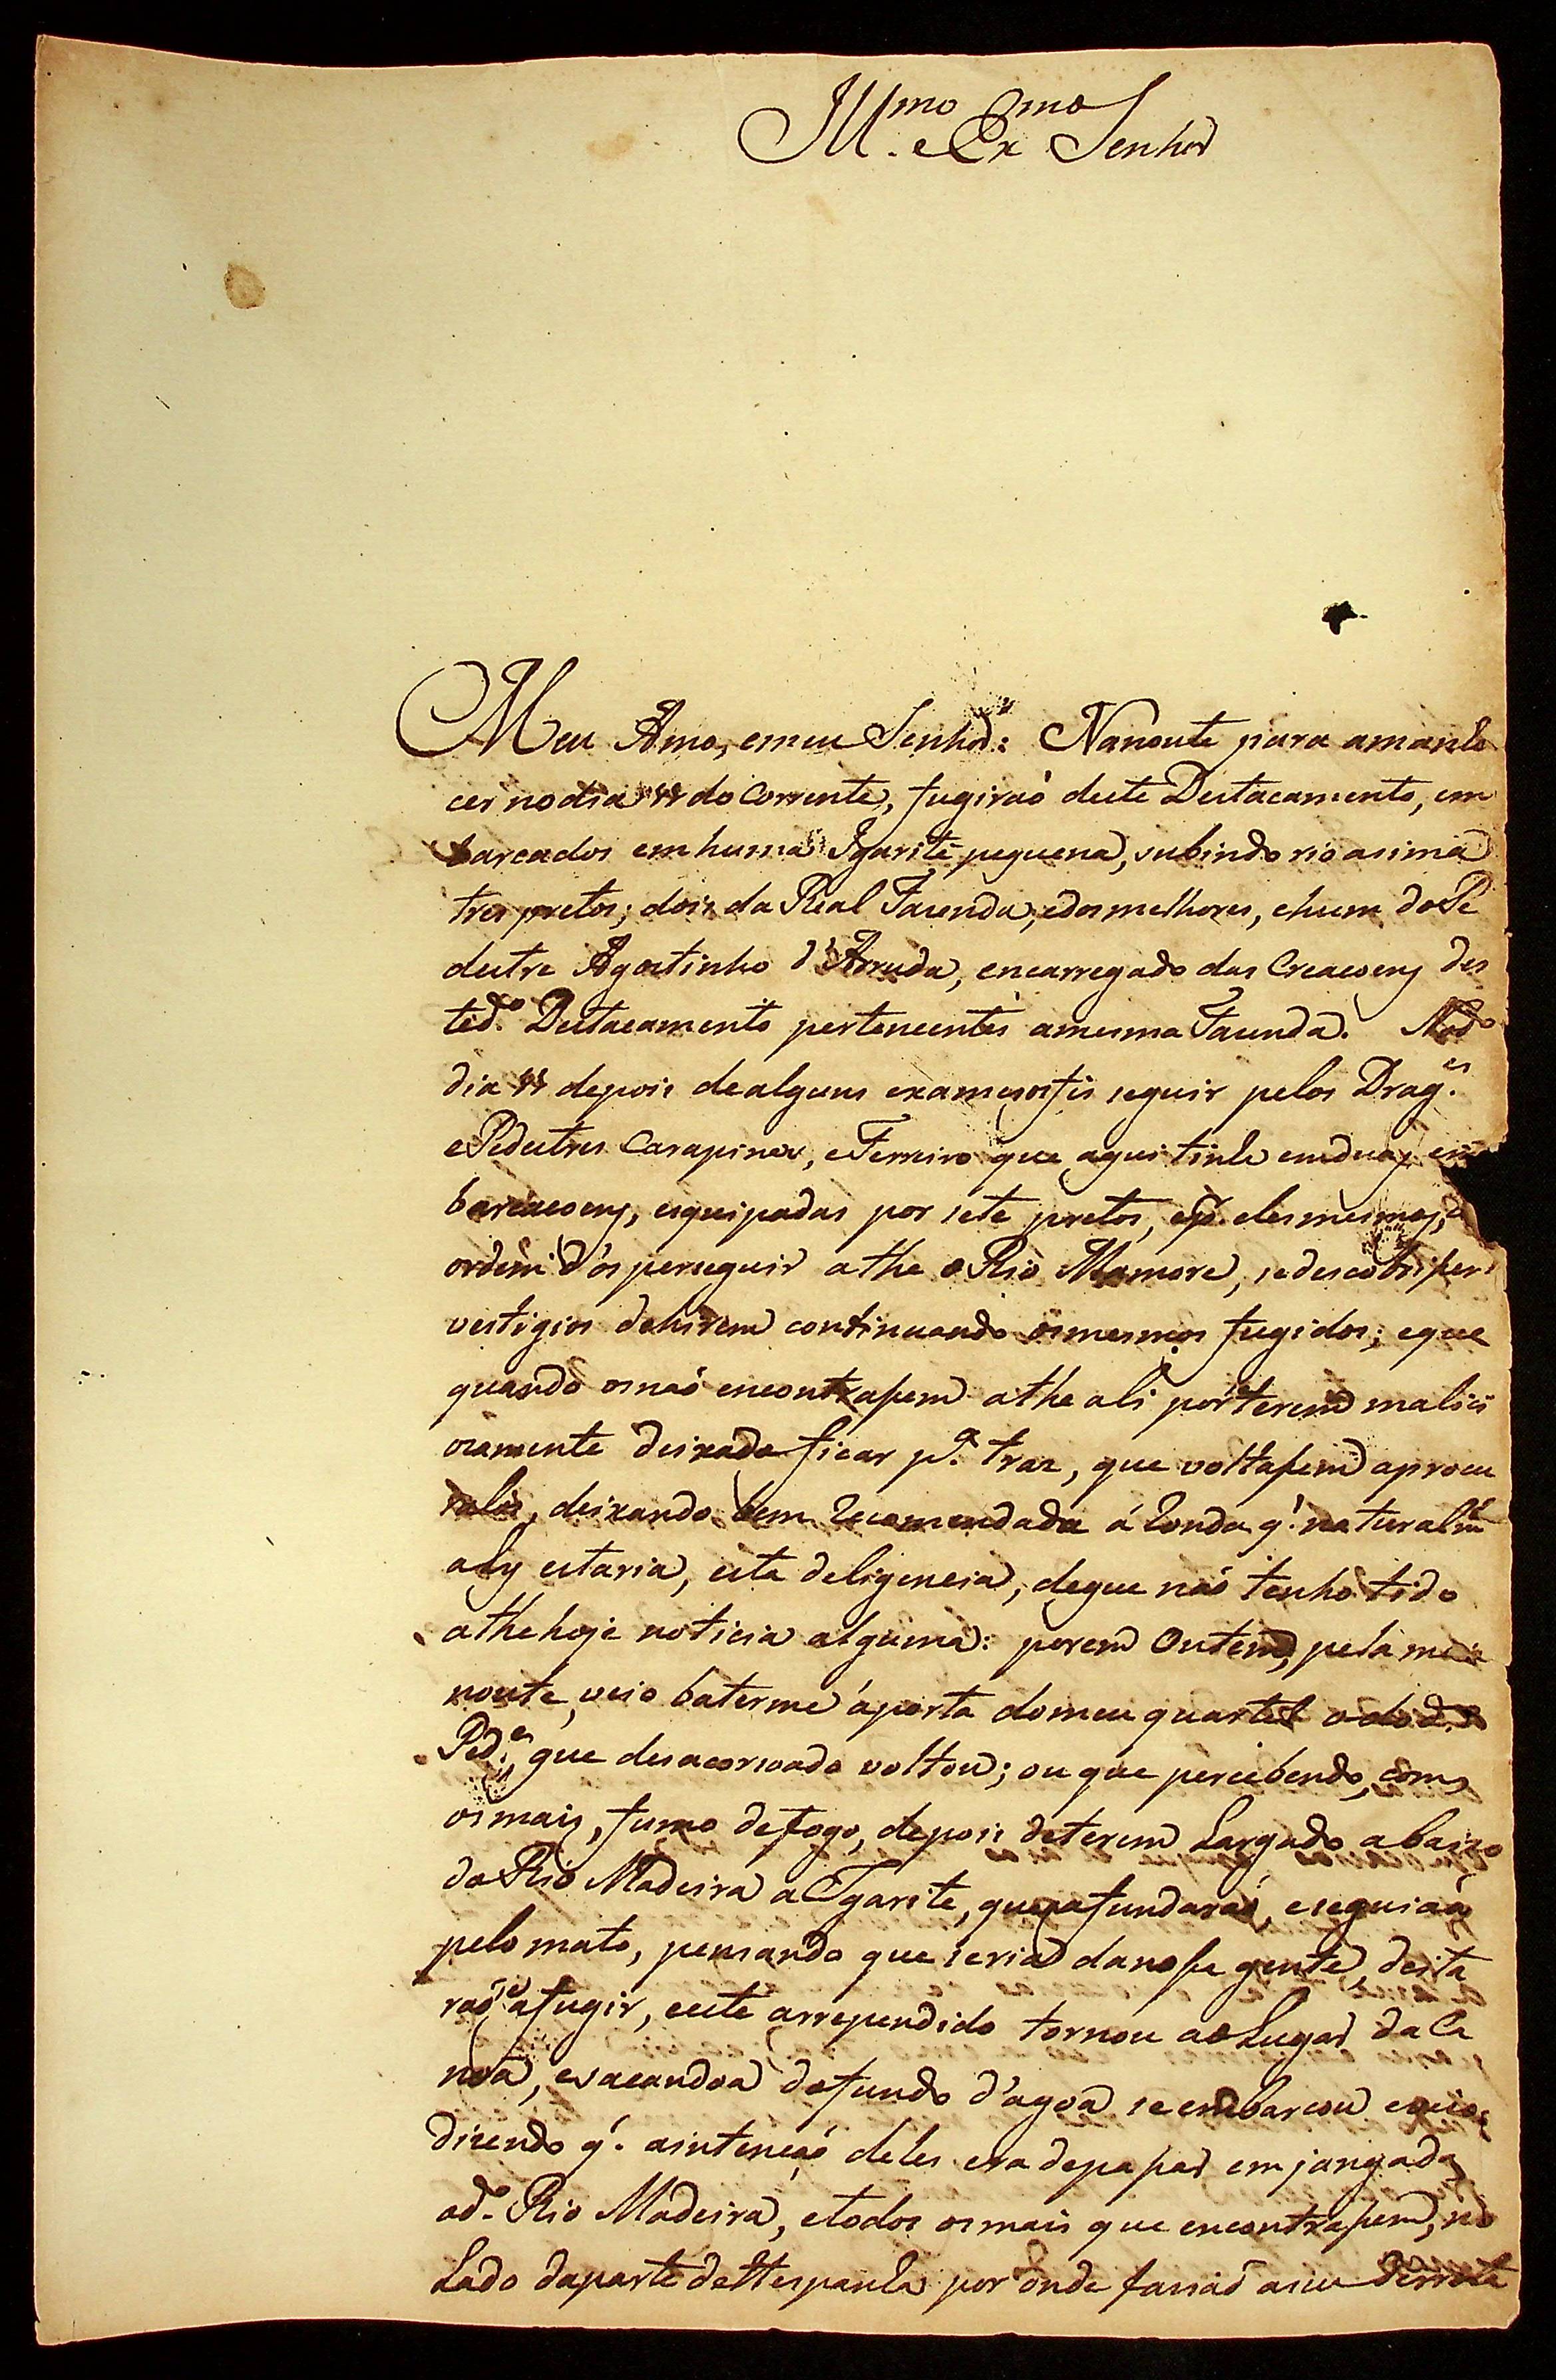 Ill.mo e Ex.mo Senhor
Meu Amo, emeu Senhor: Nanoute para amanhe
cer nodia do Corrente, fugiraó deste Destacamento, em
barcados em huma Igarité pequena, subindo rio asima
tres pretos; dois da Real Fazenda, edos melhores, ehum do Pe
destre Agostinho d'Arruda, encarregado das Creacoens des
ted.º Destacamento pertencentes amesma Fazenda. Nod.º
dia depois dealguns exames os fis seguir pelos Drag.es
ePedestres Carapina, eFerreiro que aqui tinha emduas em
barcacoens, esquipadas por sete pretos, e p. eles mesmos,
ordem d'ós perseguir athe o Rio Mamore, sedescobrissem
vestigios dehirem continuando osmesmos fugidos; eque
quando osnaó encontrassem athe ali por seterem malici
ozamente deixado ficar p.ª traz, que voltassem aprocu
ralos, deixando bem recomendada á Ronda q.' naturalm.e
aly estaria, esta deligencia, deque naó tenho tido
athe hoje noticia alguma: porem Ontem, pela meia
noute, veio baterme áporta domeu quartel o do d.º
Ped.e, que desacorsoado voltou; ou que percebendo, com
osmais, fumo defogo, depois deterem Largado abaixo
do Rio Madeira a Igarité, que afundaraó, eseguiaó
pelo mato, pensando que seria danossa gente, deita
raó afugir, eeste arrependido tornou ao Lugar da Ca
nôa, esacandoa dofundo d'agoa se embarcou eveio;
dizendo q.' aintencaó deles era depassar em jangada
od.º Rio Madeira, etodos osmais que encontrassem, no
Lado daparte deHespanha por onde fariaó asua derrota